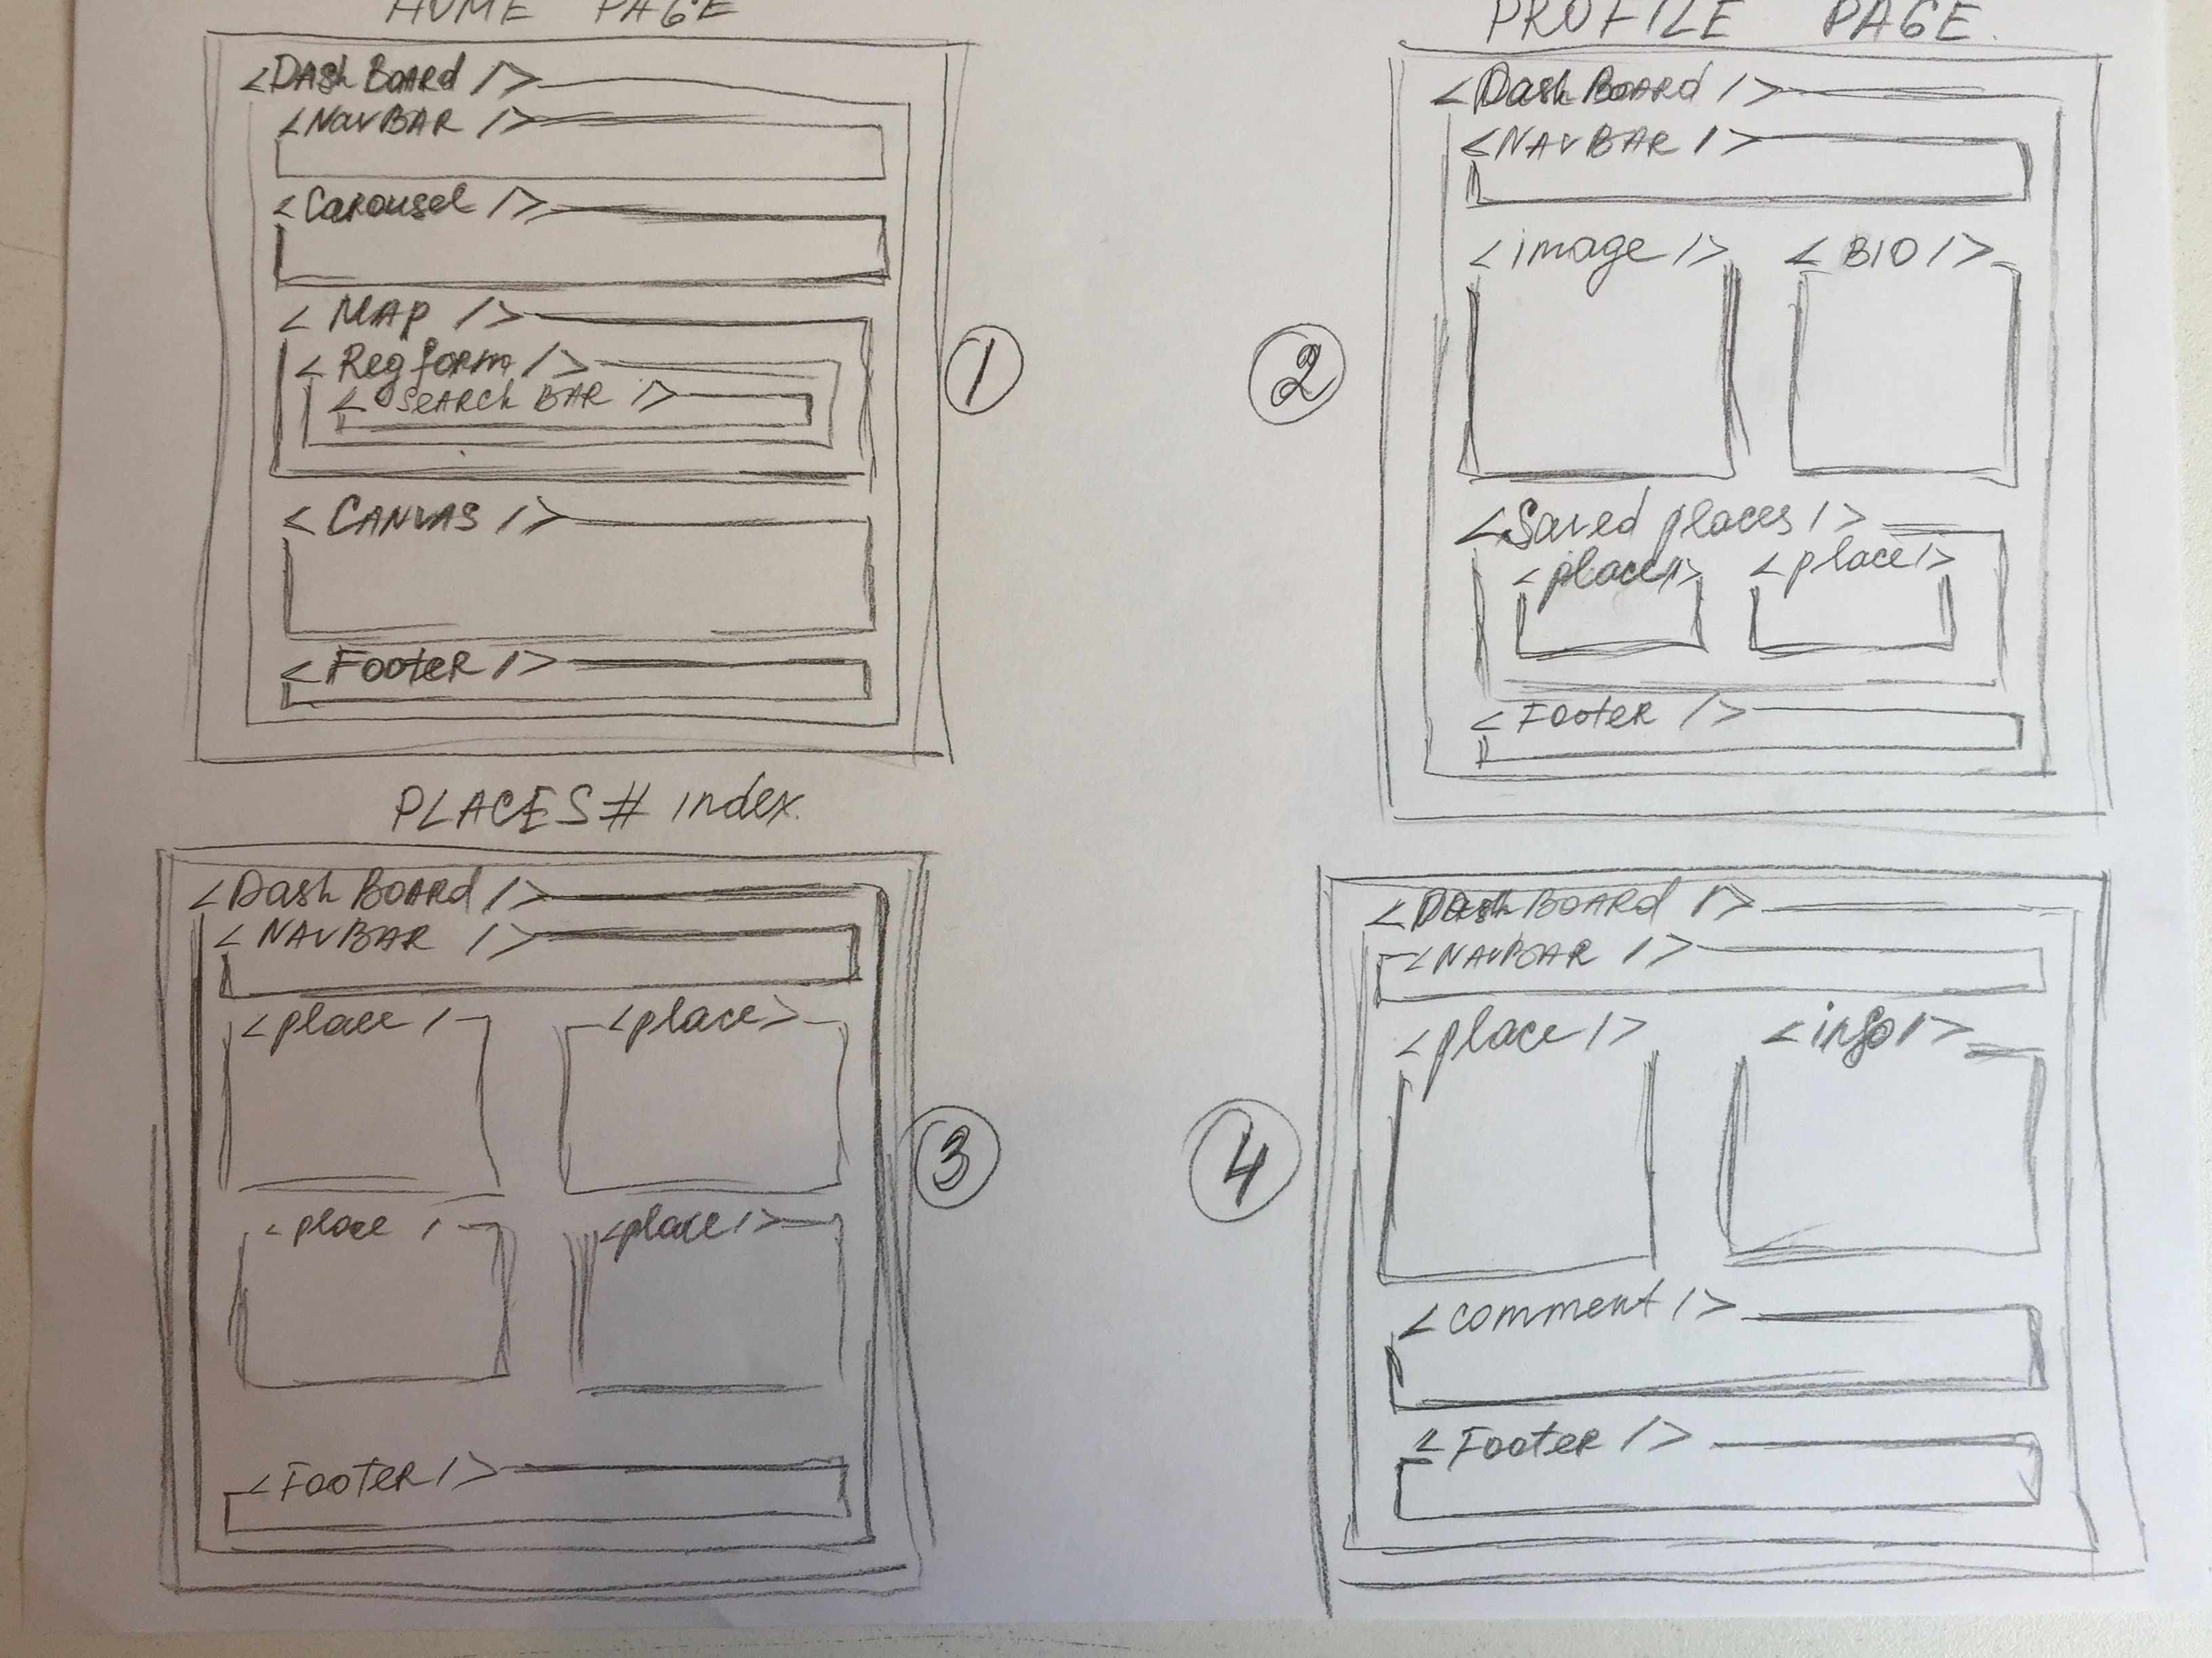 HOME PAGE
<DAShBoARd />
<NavBAR />
<Carousel />
<MAp />
<Regform />
<SeARch BAR />
<CANVAS />
<FooteR />
1
PROFILE PAGE.
<DashBoARd />
<NAvBAR />
<image />
<BIO />
<Saved places />
<place />
<place />
<FooteR />
2
PLACES# index.
<DashBOARd />
<NAvBAR />
<place /
<place>
<place /
<place />
<FooteR />
3
<DAshBOARd />
<NAvBAR />
<place />
<info />
<comment />
<FooteR />
4